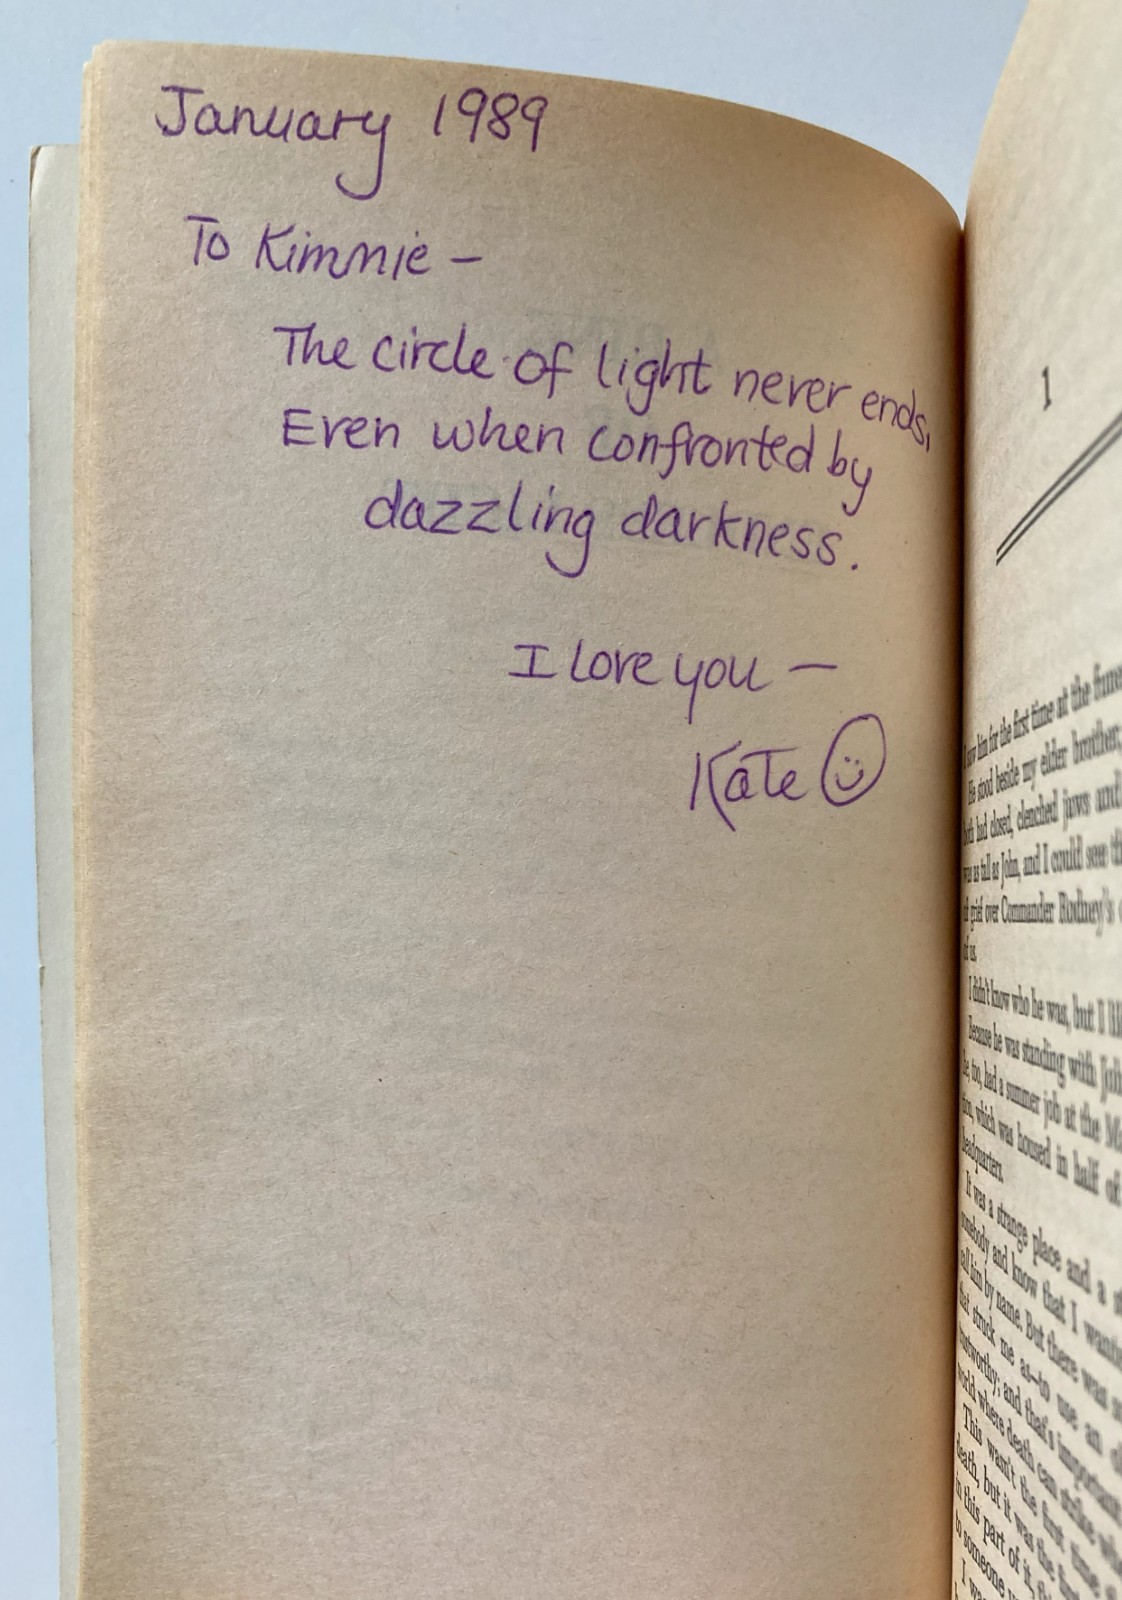 January 1989
To Kimmie –
The circle of light never ends,
Even when confronted by
dazzling darkness.
I love you –
Kate
1
I saw him for the first time at the
He stood beside my elder brother,
both had closed, clenched jaws and
was as tall as John, and I could see
of grief over Commander Rodney's
of us.
I didn't know who he was, but I
Because he was standing with
he, too, had a summer job at the
tion, which was housed in half of
headquarters.
It was a strange place and a
somebody and know that I
call him by name. But there was
that struck me as—to use an
trustworthy; and that's important
world where death can strike
This wasn't the first time
death, but it was the
in this part of it,
to someone
I